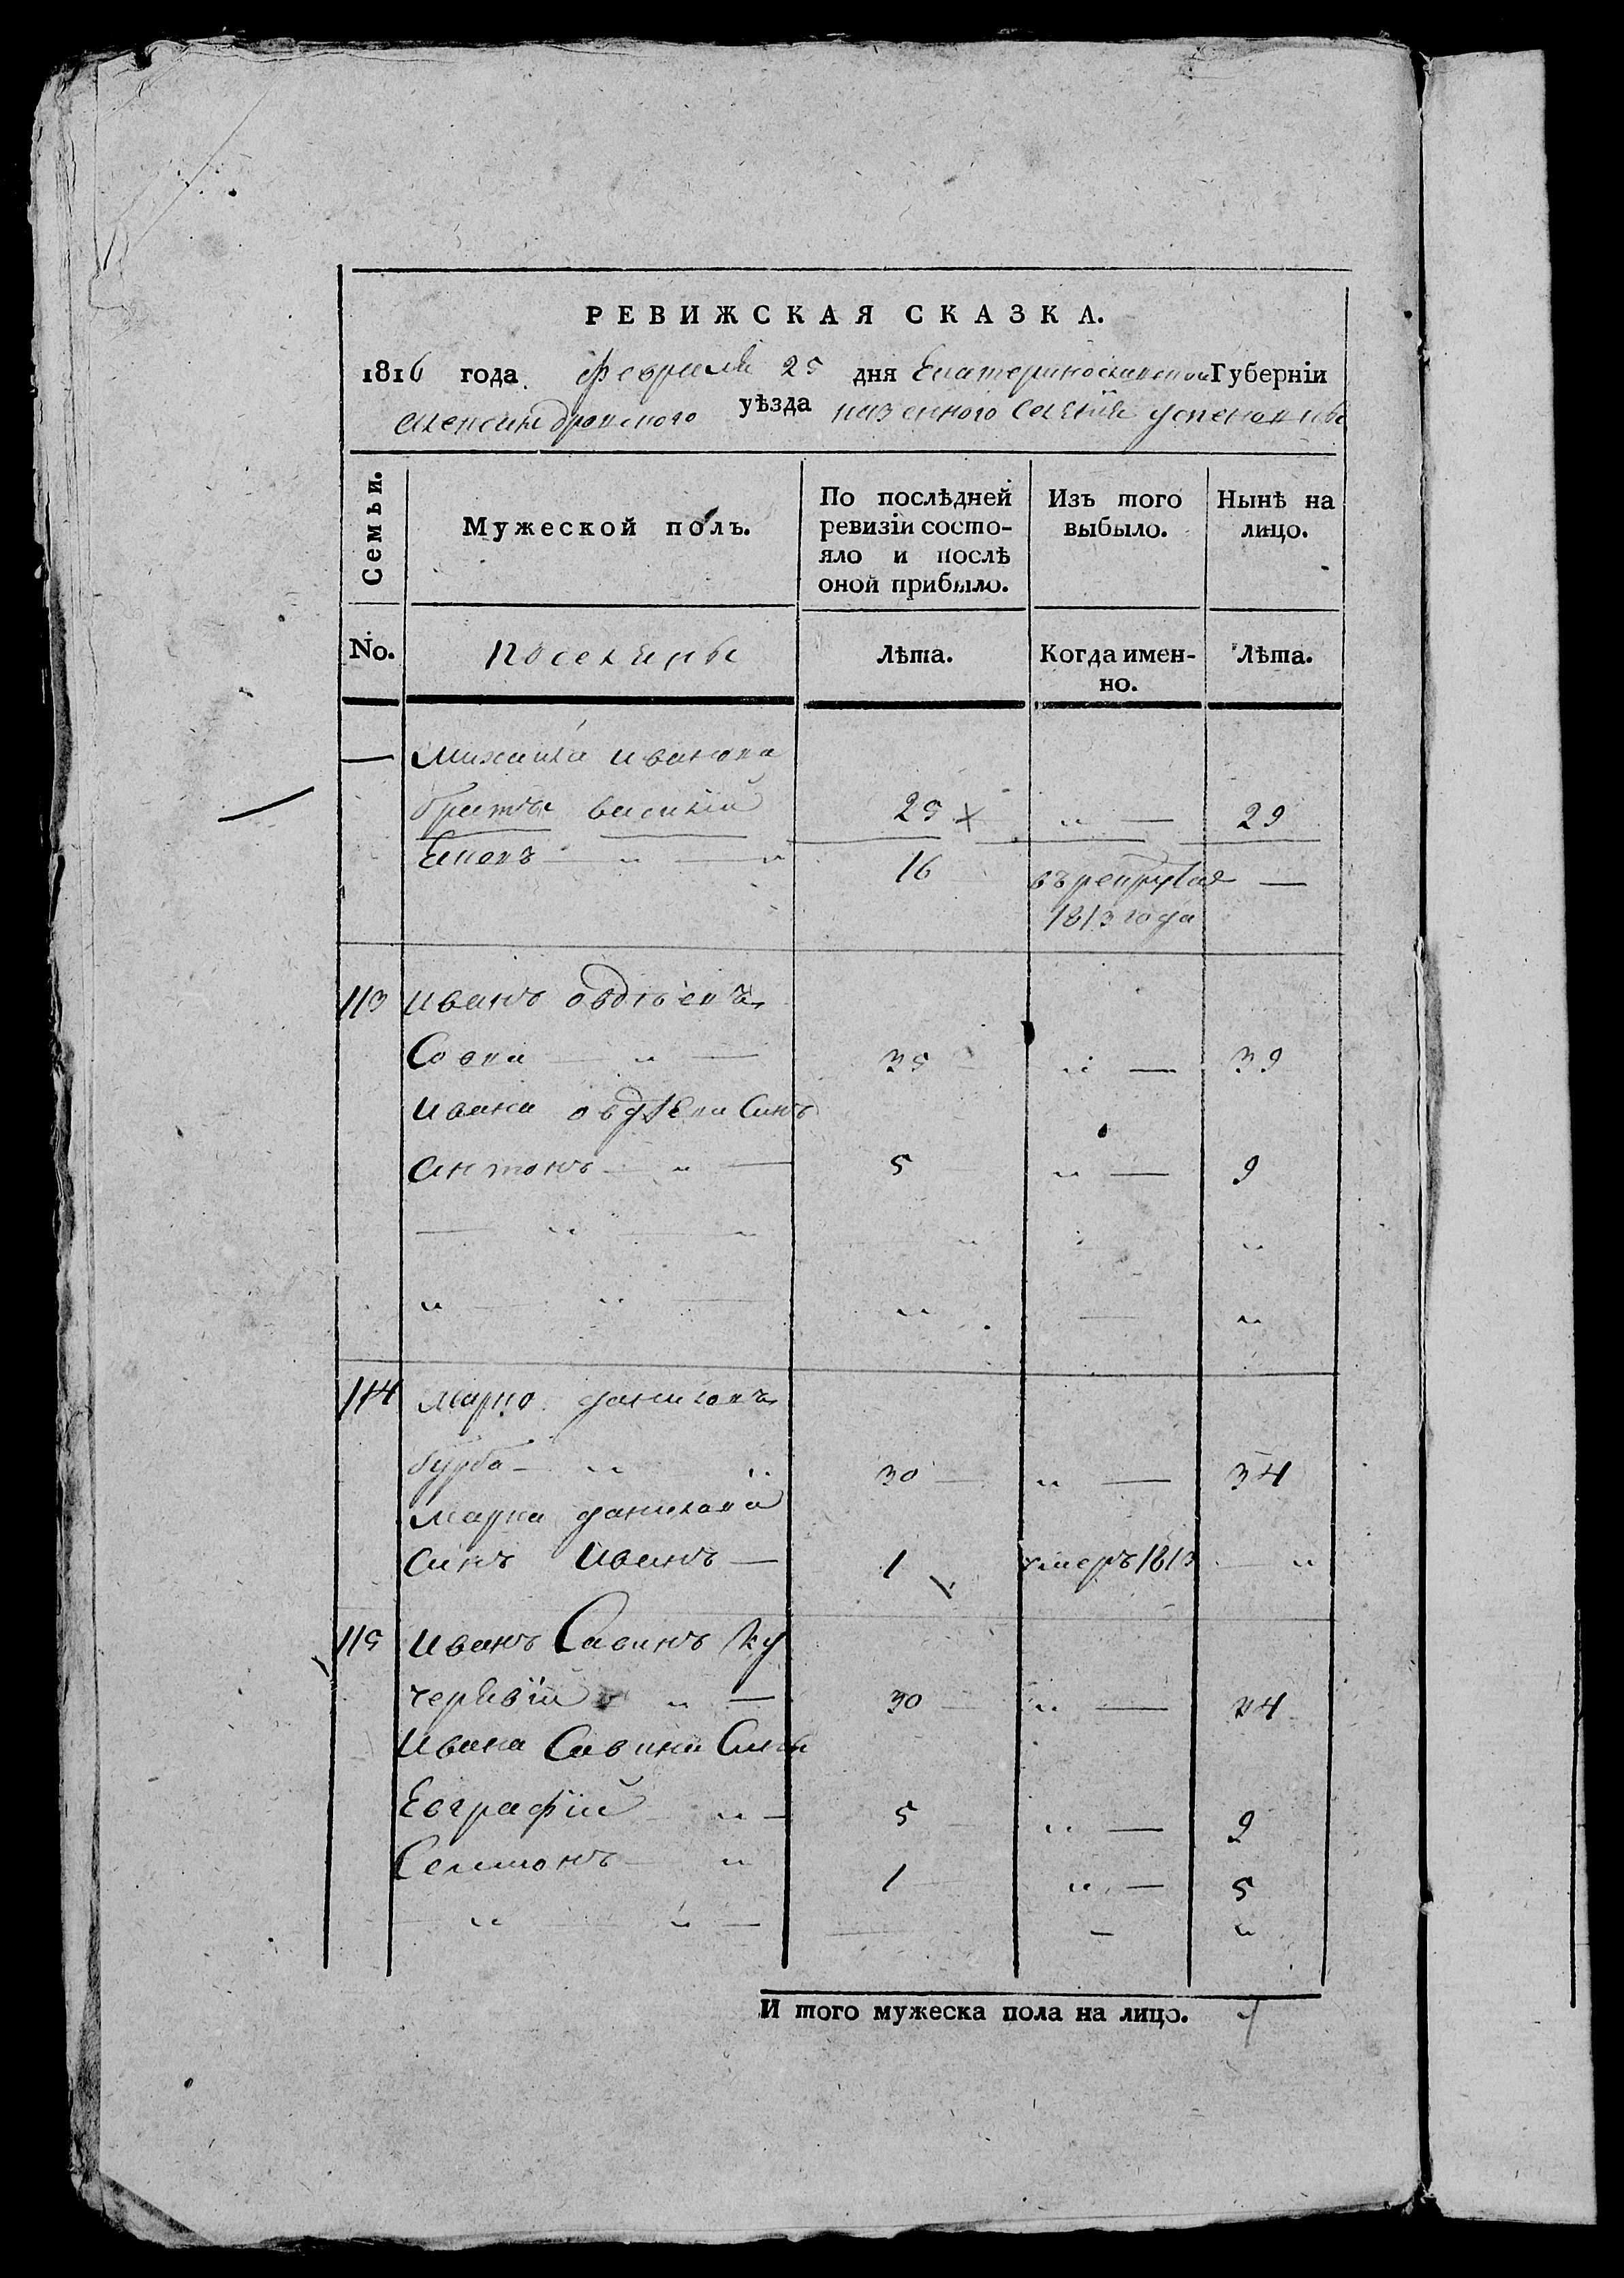 РЕВИЖСКАЯ СКАЗКА.
1816 года февраля 25 дня Екатеринославской Губерніи
александровского уѣзда казенного селенія успеновки
Семьи.
Мужеской полъ.
По послѣдней
ревизіи состо-
яло и послѣ
оной прибыло.
Изъ того
выбыло.
Нынѣ на
лицо.
No.
поселяны
Лѣта.
Когда имен-
но.
Лѣта.
Михаила иванова
братья василій 25 х „ — 29
16 въ рекрутах —
1813 года
113 иванъ авдѣевъ
Совка — „ — 35 „ — 39
ивана авдѣева синъ
антонъ — „ — 5 „ — 9
114 марко даниловъ
бурба — „ „ 30 — „ — 34
марка данилова
синъ иванъ — 1 умеръ 1813 — „
115 иванъ Савинъ ку
черявій „ — 30 — „ — 34
ивана Савина Сини
Евграфій „ — 5 „ — 9
Семионъ — „ 1 „ — 5
И того мужеска пола на лицо. 7